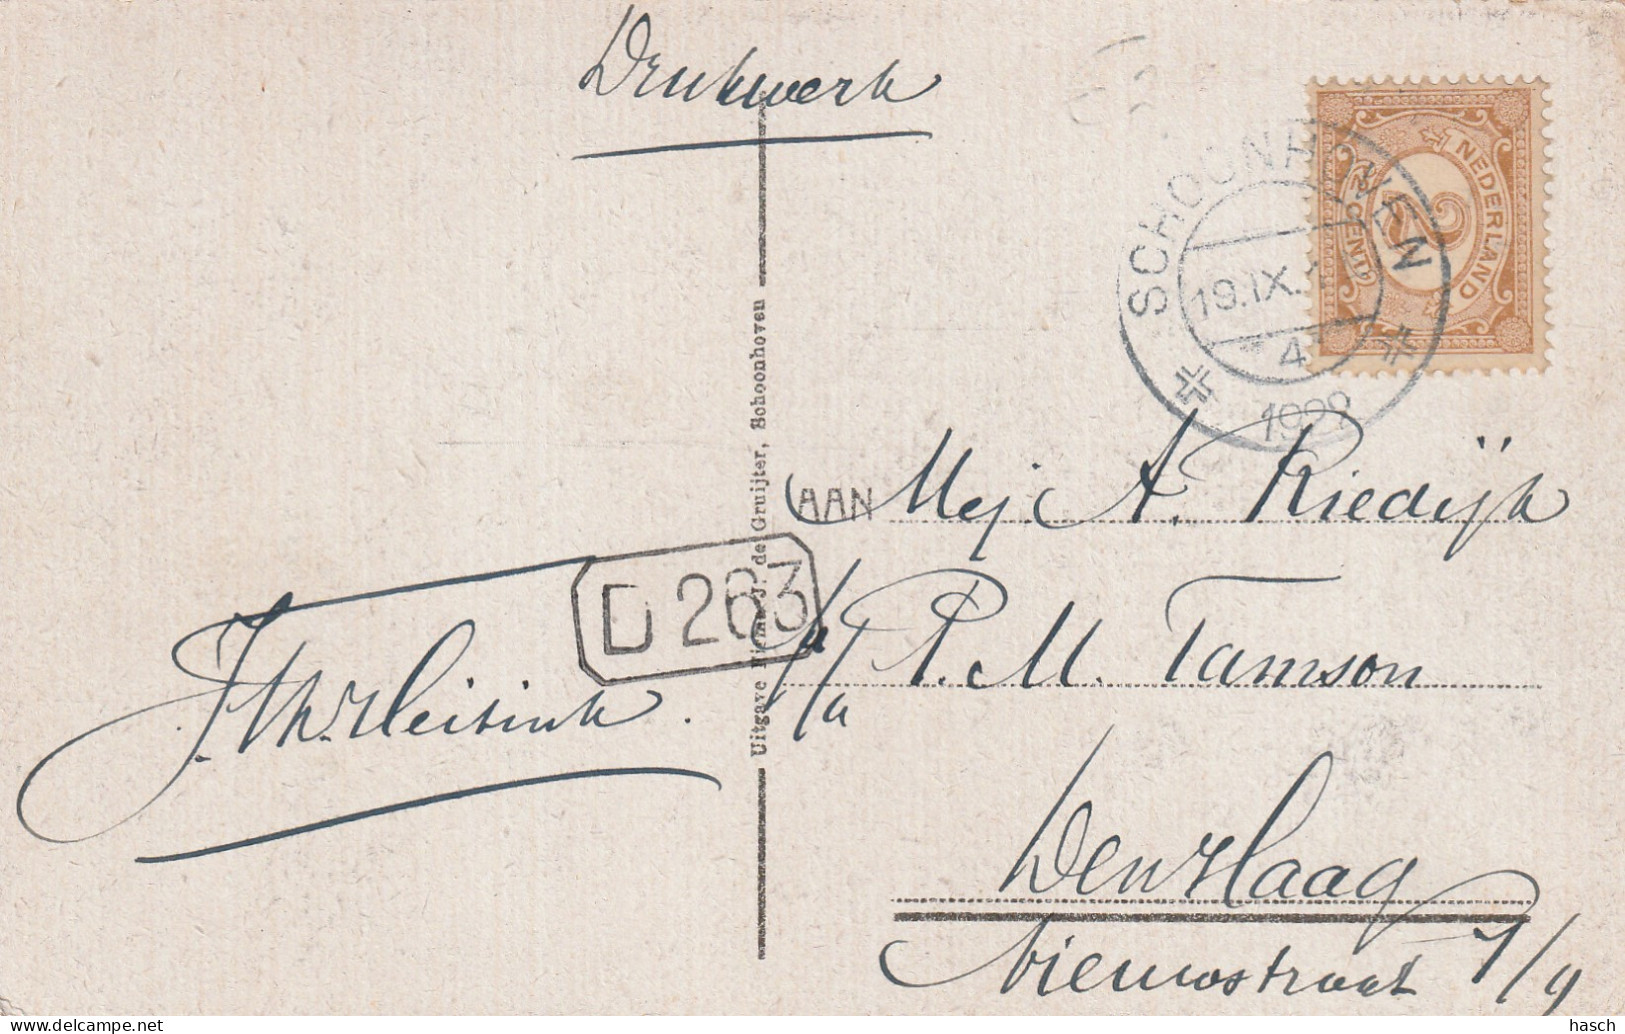 Drukwerk
SCHOONHOVEN
19.IX.
4
1922
NEDERLAND
2½
CENT
AAN Mej A. Riedijk
p/a P. M. Tamson
Den Haag
Nieuwstraat 7/9
D 263
J. Th. Heisink.
Uitgave Firma J. de Gruijter, Schoonhoven
hasch